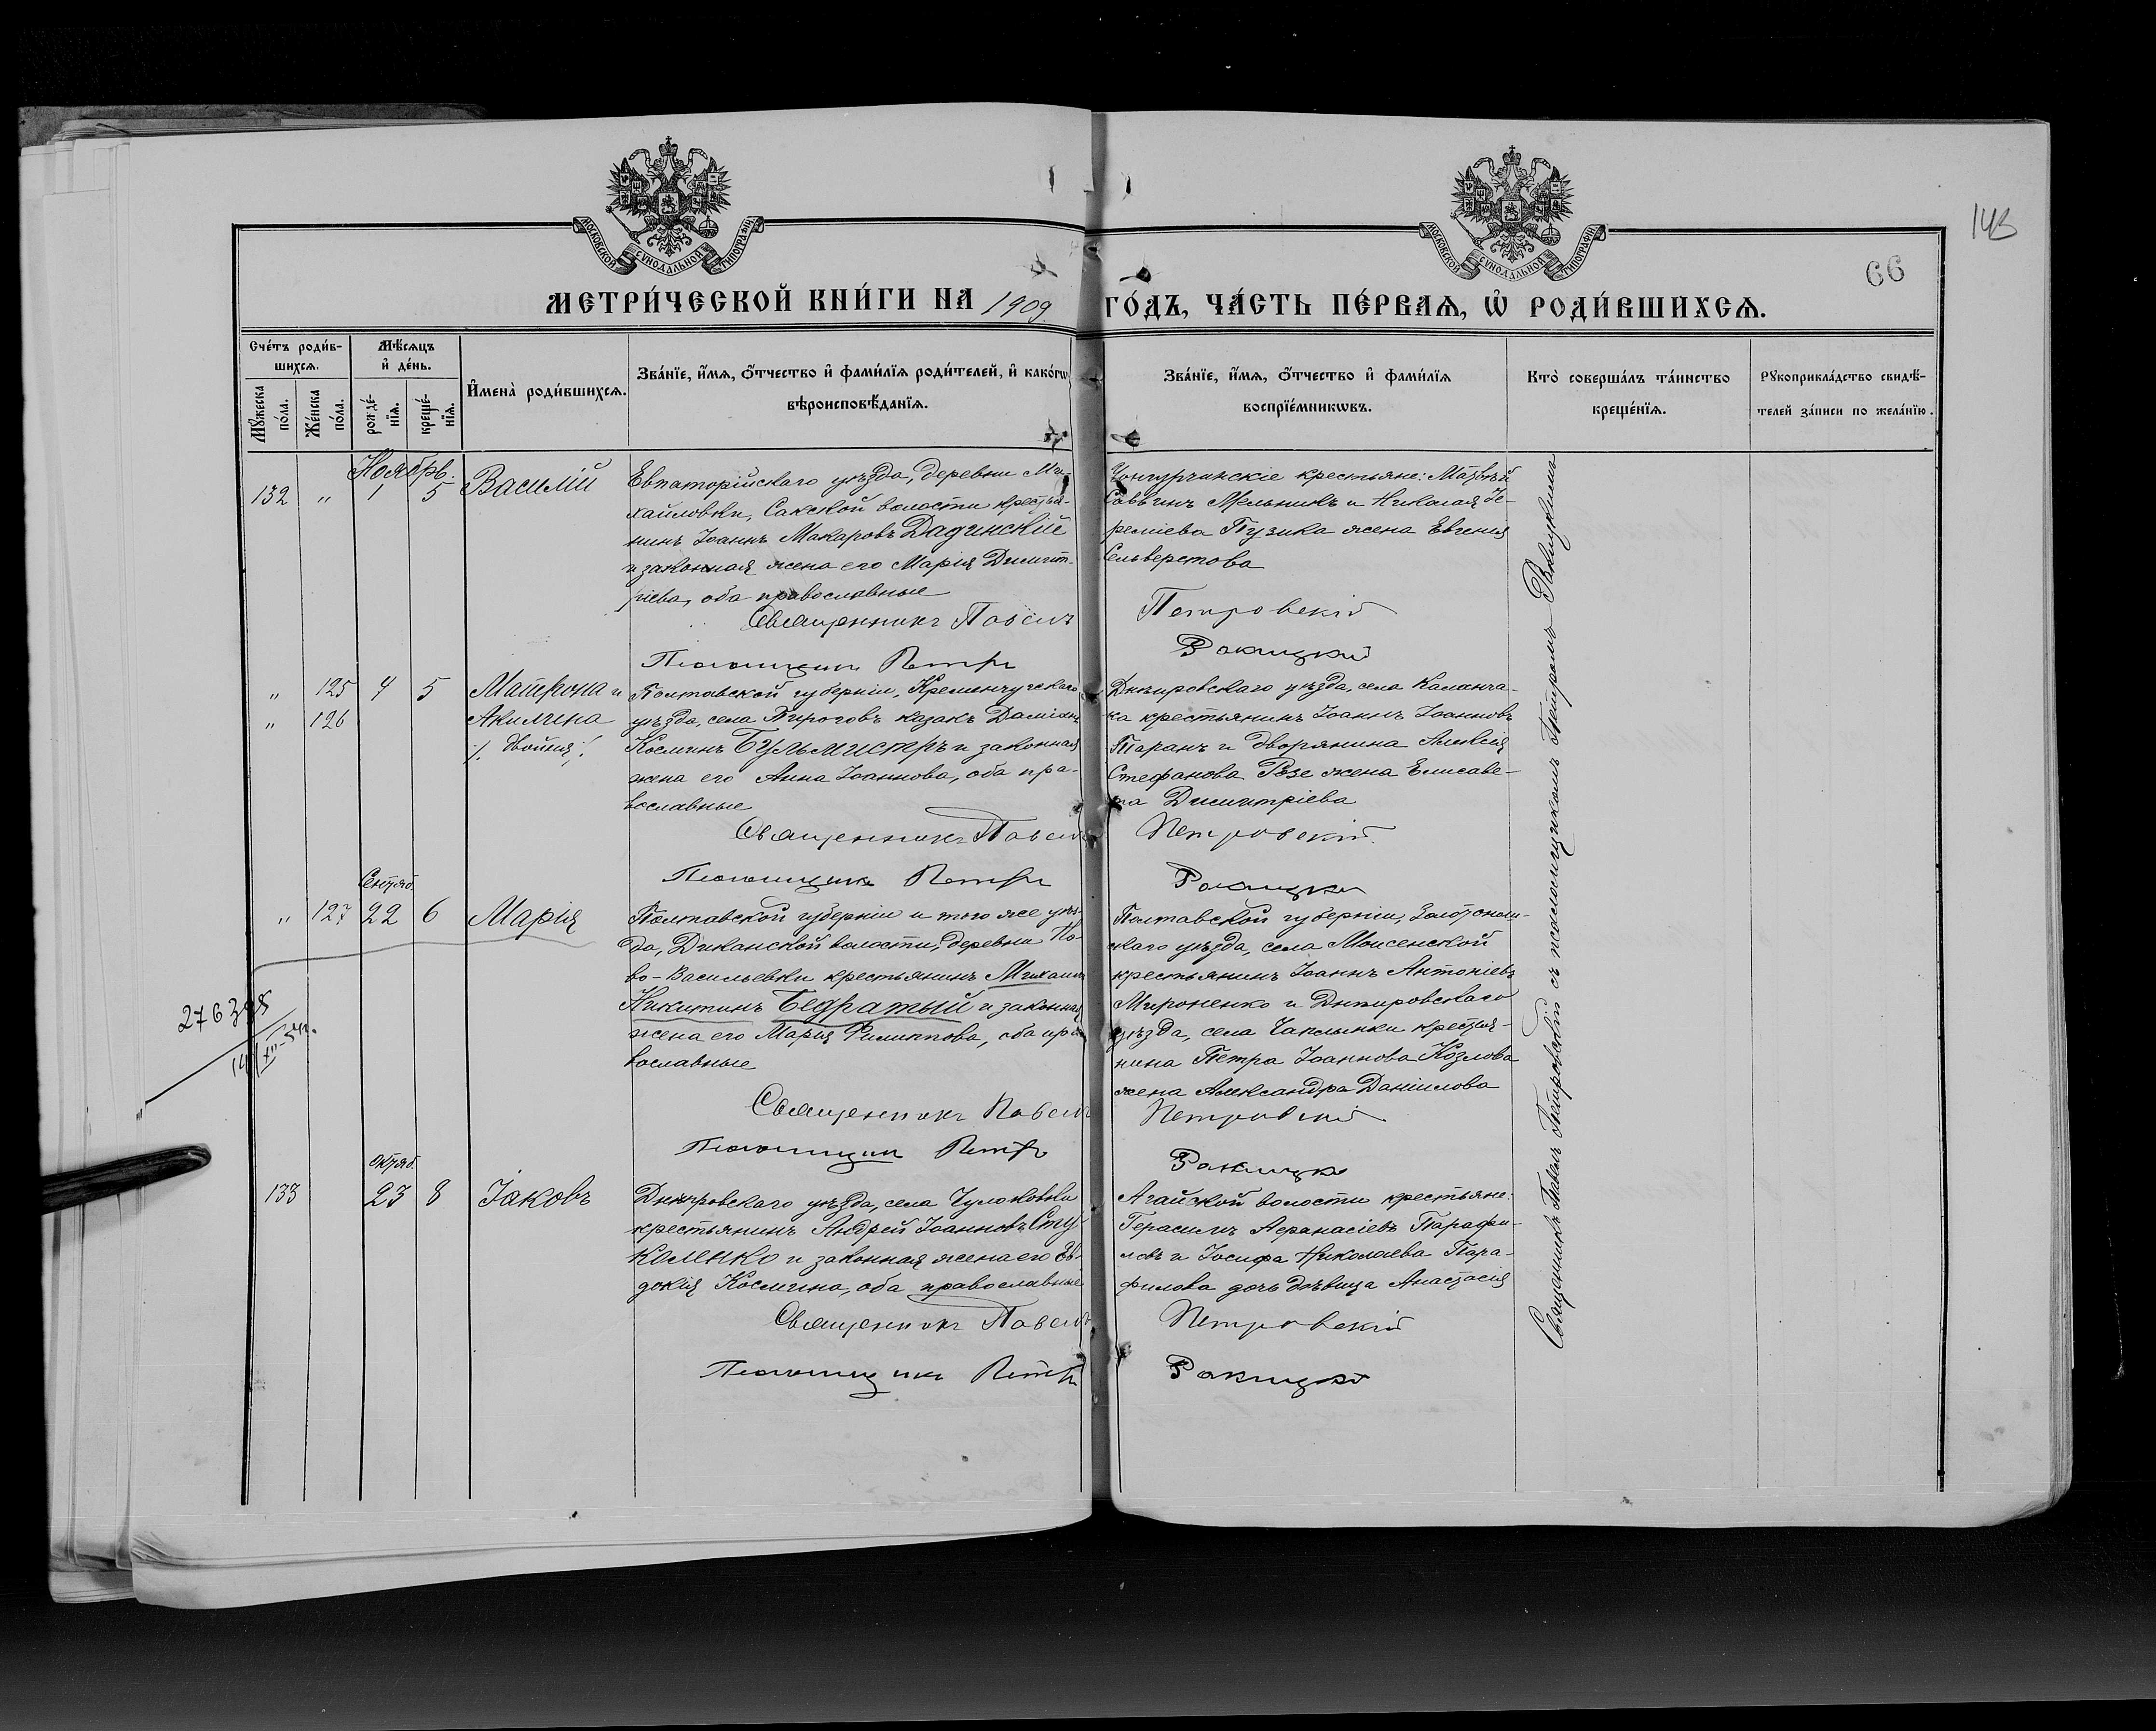 МОСКОВСКОЙ СУНОДАЛЬНОЙ ТИПОГРАФІИ
МОСКОВСКОЙ СУНОДАЛЬНОЙ ТИПОГРАФІИ
143
66
МЕТРИ́ЧЕСКОЙ КНИ́ГИ НА 1909 ГО́ДЪ, ЧА́СТЬ ПЕ́РВАѦ, Ѡ҆ РОДИ́ВШИХСѦ.
Сче́тъ роди́в-
шихсѧ.
Мꙋ́жеска по́ла.
Же́нска по́ла.
Мѣ́сѧцъ
и҆ де́нь.
рожде́-нїѧ.
креще́-нїѧ.
И҆мена̀ роди́вшихсѧ.
Зва́нїе, и҆́мѧ, ѻ҆́тчество и҆ фами́лїѧ роди́телей, и҆ како́гѡ
вѣроисповѣ́данїѧ.
Зва́нїе, и҆́мѧ, ѻ҆́тчество и҆ фами́лїѧ
воспрїе́мникѡвъ.
Кто̀ соверша́лъ та́инство
креще́нїѧ.
Рꙋкоприкла́дство свидѣ́-
телей за́писи по жела́нїю.
Ноябрь.
132 " 1 5 Василій
Евпаторійскаго уѣзда, деревни Ми-
хайловки, Сакской волости крестья-
нинъ Іоаннъ Макаровъ Дадинскій
и законная жена его Марія Димит-
ріева, оба православные
Священникъ Павелъ
Псаломщикъ Петръ
крестьяне: Матвѣй
Саввинъ Мельникъ и Николая Іе-
реміева Пузика жена Евгенія
Сельверстова
Петровскій
Ракицкій
" 125 4 5 Матрона и
" 126 Акилина
/. двойня ./
Полтавской губерніи, Кременчугскаго
уѣзда, села Пироговъ казакъ Даміанъ
Косминъ Бульмистеръ и законная
жена его Анна Іоаннова, оба пра-
вославные
Священникъ Павелъ
Псаломщикъ Петръ
Днѣпровскаго уѣзда, села Каланча-
ка крестьянинъ Іоаннъ Іоанновъ
Таранъ и дворянина Алексія
Стефанова Розе жена Елисаве-
та Димитріева
Петровскій
Ракицкій
Сентяб.
" 127 22 6 Марія
Полтавской губерніи и того же уѣз-
да, Диканской волости, деревни Но-
во-Васильевки крестьянинъ Михаилъ
Никитинъ Бедратый и законная
жена его Марія Филиппова, оба пра-
вославные
Священникъ Павелъ
Псаломщикъ Петръ
Полтавской губерніи, Золотонош-
скаго уѣзда, села Моисенской
крестьянинъ Іоаннъ Антоніевъ
Мироненко и Днѣпровскаго
уѣзда, села Чаплынки крестья-
нина Петра Іоаннова Козлова
жена Александра Даніилова
Петровскій
Ракицкій
Октяб.
133 23 8 Іаковъ
Днѣпровскаго уѣзда, села Чулаковки
крестьянинъ Андрей Іоанновъ Сту-
коленко и законная жена его Ев-
докія Космина, оба православные
Священникъ Павелъ
Псаломщикъ Петръ
Агайской волости крестьяне:
Герасимъ Аѳанасіевъ Парафи-
ловъ и Іосифа Николаева Пара-
филова дочь дѣвица Анастасія
Петровскій
Ракицкій
Священникъ Павелъ Петровскій съ псаломщикомъ Петромъ Ракицкимъ